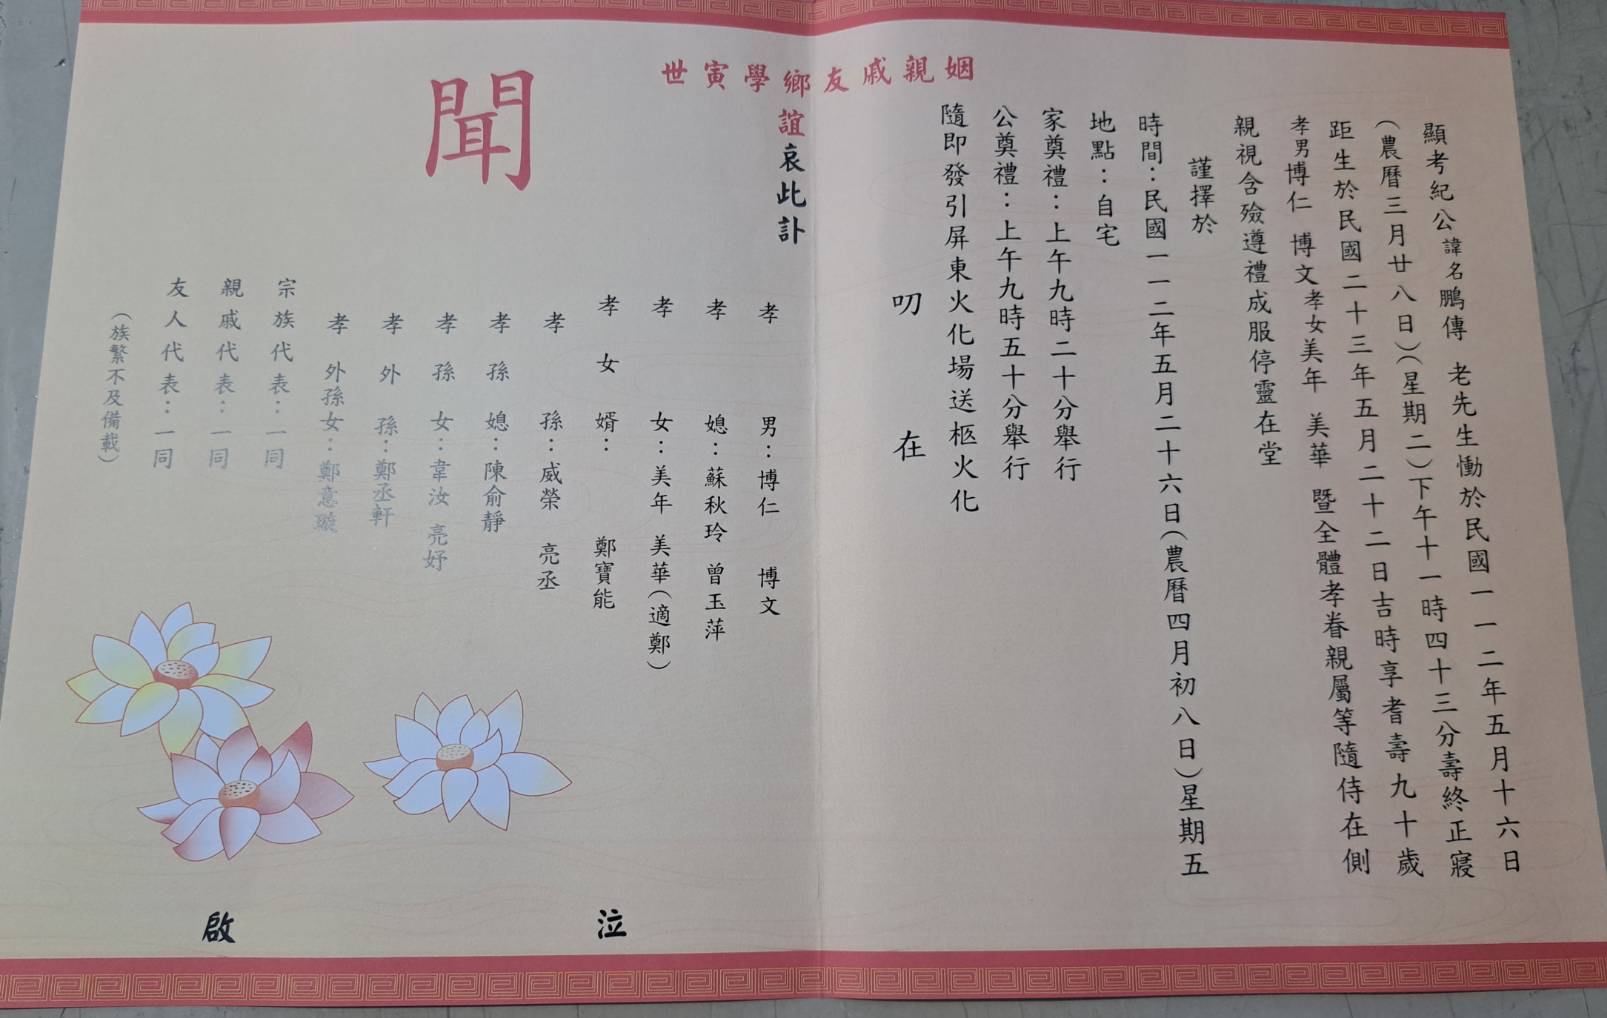 顯考紀公諱名鵬傳　老先生慟於民國一一二年五月十六日
（農曆三月廿八日）（星期二）下午十一時四十三分壽終正寢
距生於民國二十三年五月二十二日吉時享耆壽九十歲
孝男博仁　博文孝女美年　美華　暨全體孝眷親屬等隨侍在側
親視含殮遵禮成服停靈在堂
謹擇於
時間：民國一一二年五月二十六日（農曆四月初八日）星期五
地點：自宅
家奠禮：上午九時二十分舉行
公奠禮：上午九時五十分舉行
隨即發引屏東火化場送柩火化
叨　在
姻親戚友鄉學寅世
誼哀此訃
聞
孝　男：博仁　博文
孝　媳：蘇秋玲　曾玉萍
孝　女：美年　美華（適鄭）
孝女婿：　鄭寶能
孝　孫：威榮　亮丞
孝孫媳：陳俞靜
孝孫女：韋汝　亮妤
孝外孫：鄭丞軒
孝外孫女：鄭意璇
宗族代表：一同
親戚代表：一同
友人代表：一同
（族繁不及備載）
泣　啟